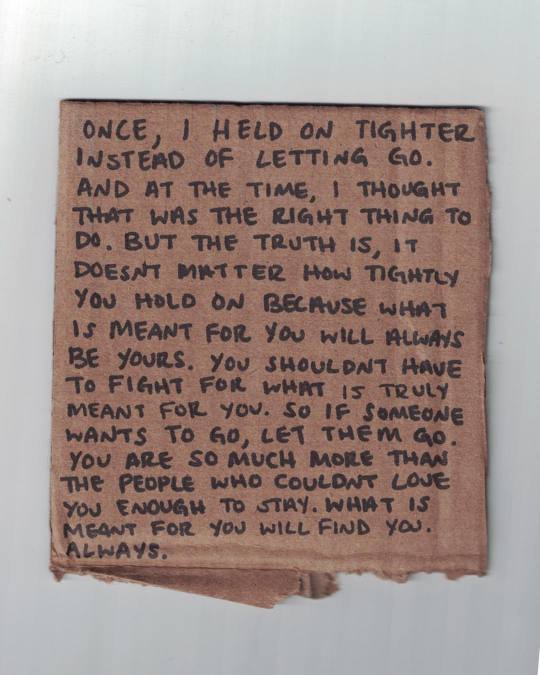 ONCE, I HELD ON TIGHTER
INSTEAD OF LETTING GO.
AND AT THE TIME, I THOUGHT
THAT WAS THE RIGHT THING TO
DO. BUT THE TRUTH IS, IT
DOESNT MATTER HOW TIGHTLY
YOU HOLD ON BECAUSE WHAT
IS MEANT FOR YOU WILL ALWAYS
BE YOURS. YOU SHOULDNT HAVE
TO FIGHT FOR WHAT IS TRULY
MEANT FOR YOU. SO IF SOMEONE
WANTS TO GO, LET THEM GO.
YOU ARE SO MUCH MORE THAN
THE PEOPLE WHO COULDNT LOVE
YOU ENOUGH TO STAY. WHAT IS
MEANT FOR YOU WILL FIND YOU.
ALWAYS.